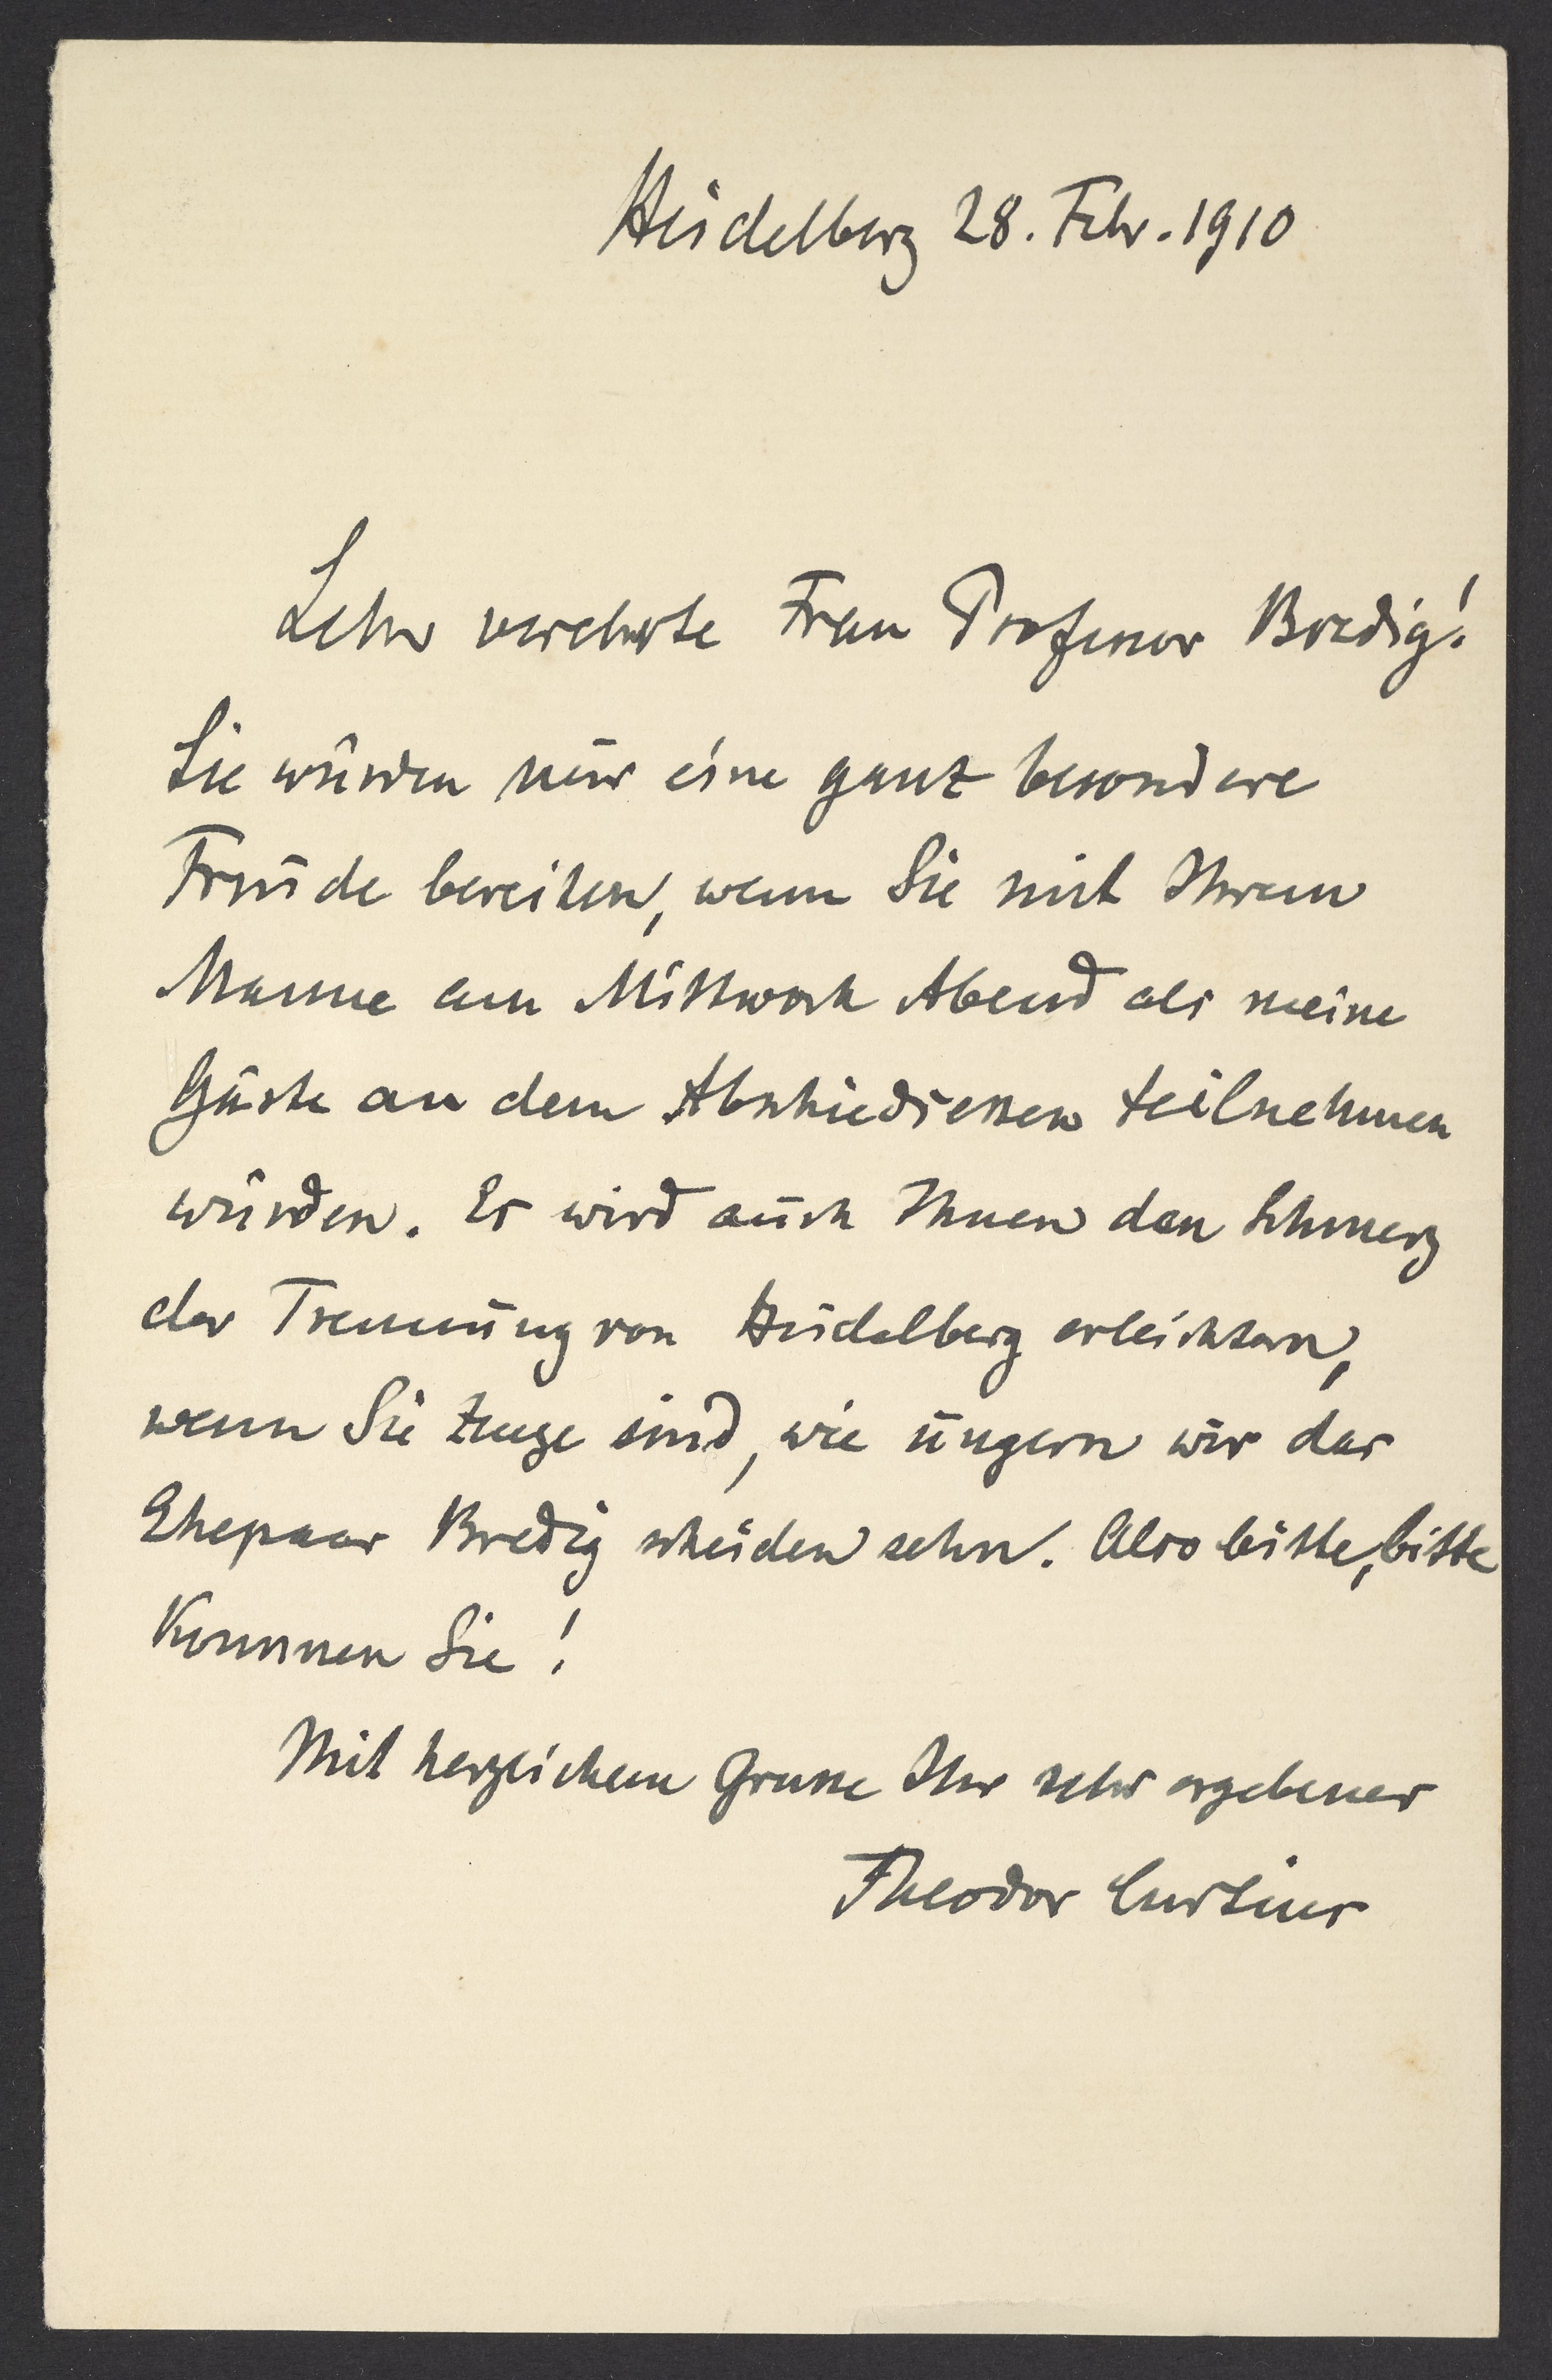 Heidelberg 28. Febr. 1910
Sehr verehrte Frau Professor Bredig!
Sie würden mir eine ganz besondere
Freude bereiten, wenn Sie mit Ihrem
Manne am Mittwoch Abend als meine
Gäste an dem Abschiedsessen teilnehmen
würden. Es wird auch Ihnen den Schmerz
der Trennung von Heidelberg erleichtern,
wenn Sie Zeuge sind, wie ungern wir das
Ehepaar Bredig scheiden sehn. Also bitte, bitte
Kommen Sie!
Mit herzlichem Grusse Ihr sehr ergebener
Theodor Curtius